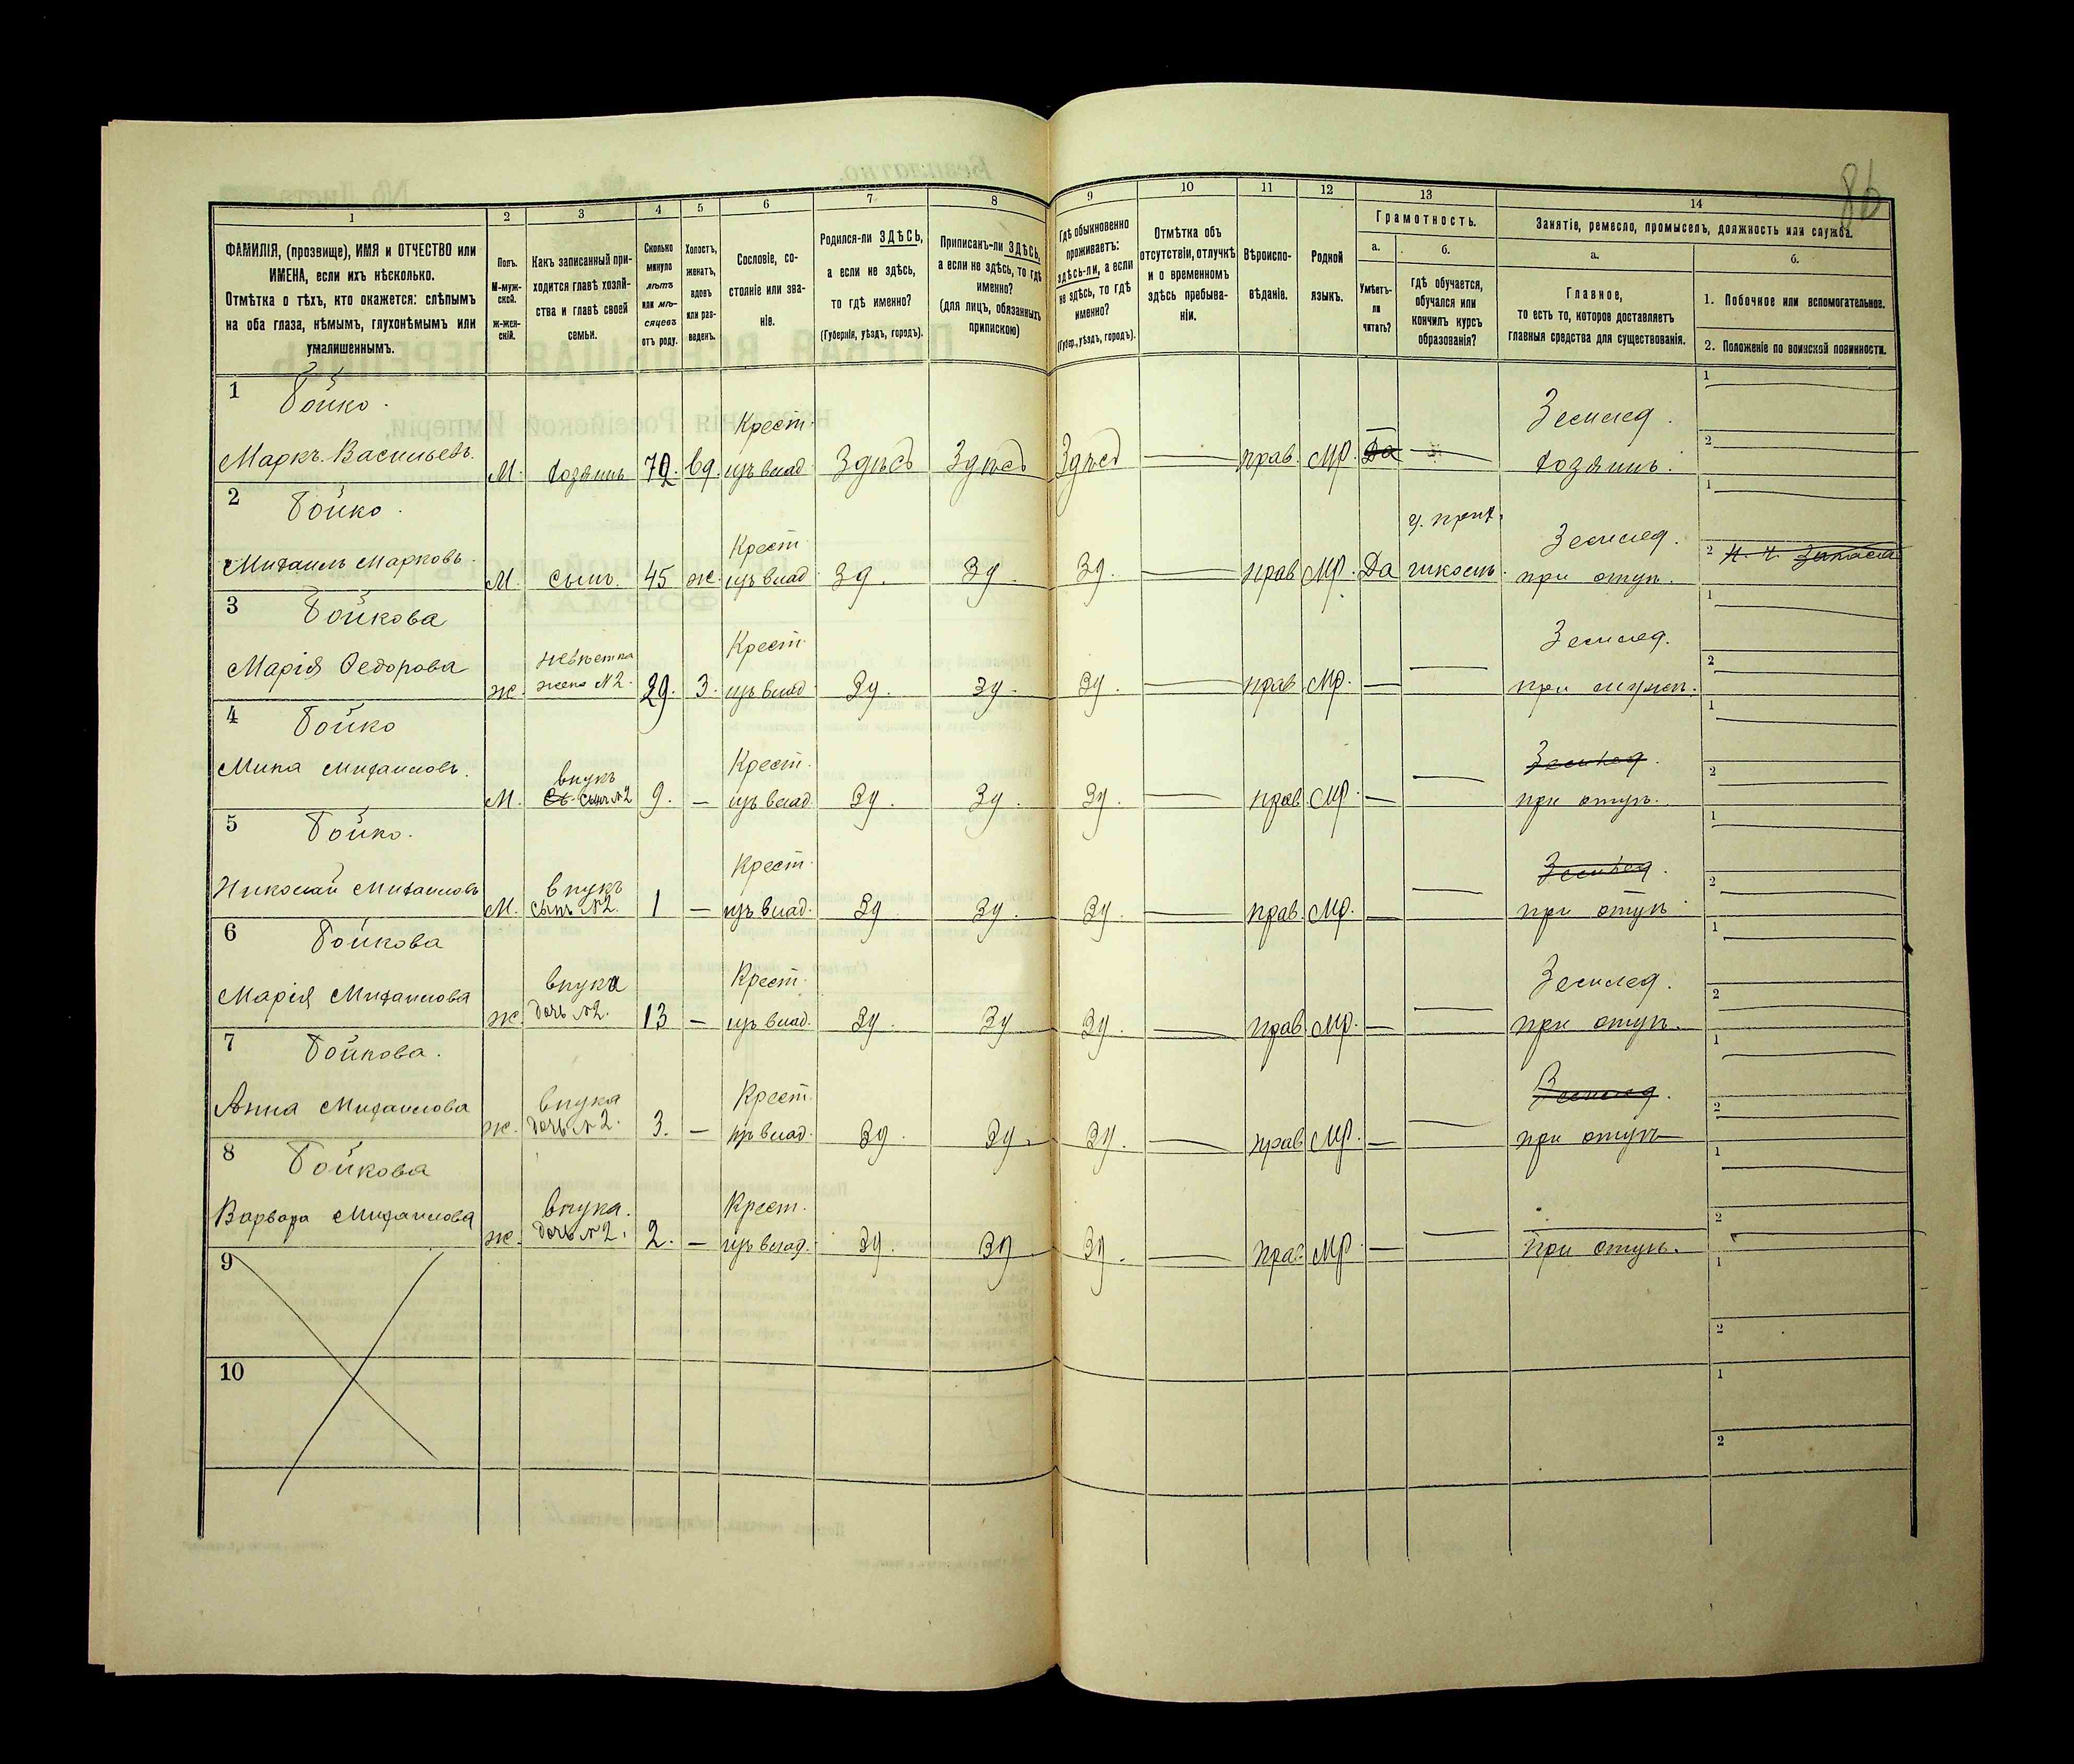 86
1 2 3 4 5 6 7 8 9 10 11 12 13 14
ФАМИЛІЯ, (прозвище), ИМЯ и ОТЧЕСТВО или
ИМЕНА, если ихъ нѣсколько.
Отмѣтка о тѣхъ, кто окажется: слѣпымъ
на оба глаза, нѣмымъ, глухонѣмымъ или
умалишеннымъ.
Полъ.
М-муж-
ской.
ж-жен-
скій.
Какъ записанный при-
ходится главѣ хозяй-
ства и главѣ своей
семьи.
Сколько
минуло
лѣтъ
или мѣ-
сяцевъ
отъ роду.
Холостъ,
женатъ,
вдовъ
или раз-
веденъ.
Сословіе, со-
стояніе или зва-
ніе.
Родился-ли ЗДѢСЬ,
а если не здѣсь,
то гдѣ именно?
(Губернія, уѣздъ, городъ).
Приписанъ-ли ЗДѢСЬ,
а если не здѣсь, то гдѣ
именно?
(для лицъ, обязанныхъ
припискою)
Гдѣ обыкновенно
проживаетъ:
здѣсь-ли, а если
не здѣсь, то гдѣ
именно?
(Губер., уѣздъ, городъ).
Отмѣтка объ
отсутствіи, отлучкѣ
и о временномъ
здѣсь пребыва-
ніи.
Вѣроиспо-
вѣданіе.
Родной
языкъ.
Грамотность.
а.
Умѣетъ-
ли
читать?
б.
гдѣ обучается,
обучался или
кончилъ курсъ
образованія?
Занятіе, ремесло, промыселъ, должность или служба.
а.
Главное,
то есть то, которое доставляетъ
главныя средства для существованія.
б.
1. Побочное или вспомогательное.
2. Положеніе по воинской повинности.
1 Бойко.
Маркъ Васильевъ. М. хозяинъ 72. вд. Крест. изъ влад. Здѣсь Здѣсь Здѣсь — прав. Мр. Да — Землед. хозяинъ. 1 2
2 Бойко.
Михаилъ Марковъ. М. сынъ. 45 ж. Крест. изъ влад. Зд. Зд. Зд. — прав. Мр. Да школѣ. Землед. при отцѣ. 1 2 Запаса
3 Бойкова
Марія Ѳедорова ж. невѣстка жена №2. 29. З. Крест. изъ влад. Зд. Зд. Зд. — прав. Мр. — — Землед. при мужѣ. 1 2
4 Бойко
Мина Михаиловъ. М. внукъ сынъ №2 9. — Крест. изъ влад. Зд. Зд. Зд. — прав. Мр. — — Землед. при отцѣ. 1 2
5 Бойко.
Николай Михаиловъ М. внукъ сынъ №2. 1 — Крест. изъ влад. Зд. Зд. Зд. — прав. Мр. — — Землед. при отцѣ 1 2
6 Бойкова
Марія Михаилова ж. внука дочь №2. 13 — Крест. изъ влад. Зд. Зд. Зд. — прав. Мр. — — Землед. при отцѣ. 1 2
7 Бойкова.
Анна Михаилова ж. внука дочь №2. 3. — Крест. изъ влад. Зд. Зд. Зд. — прав. Мр. — — Землед. при отцѣ 1 2
8 Бойкова
Варвара Михаилова ж. внука. дочь №2. 2. — Крест. изъ влад. Зд. Зд. Зд. — прав. Мр. — — при отцѣ. 1 2
9 1 2
10 1 2